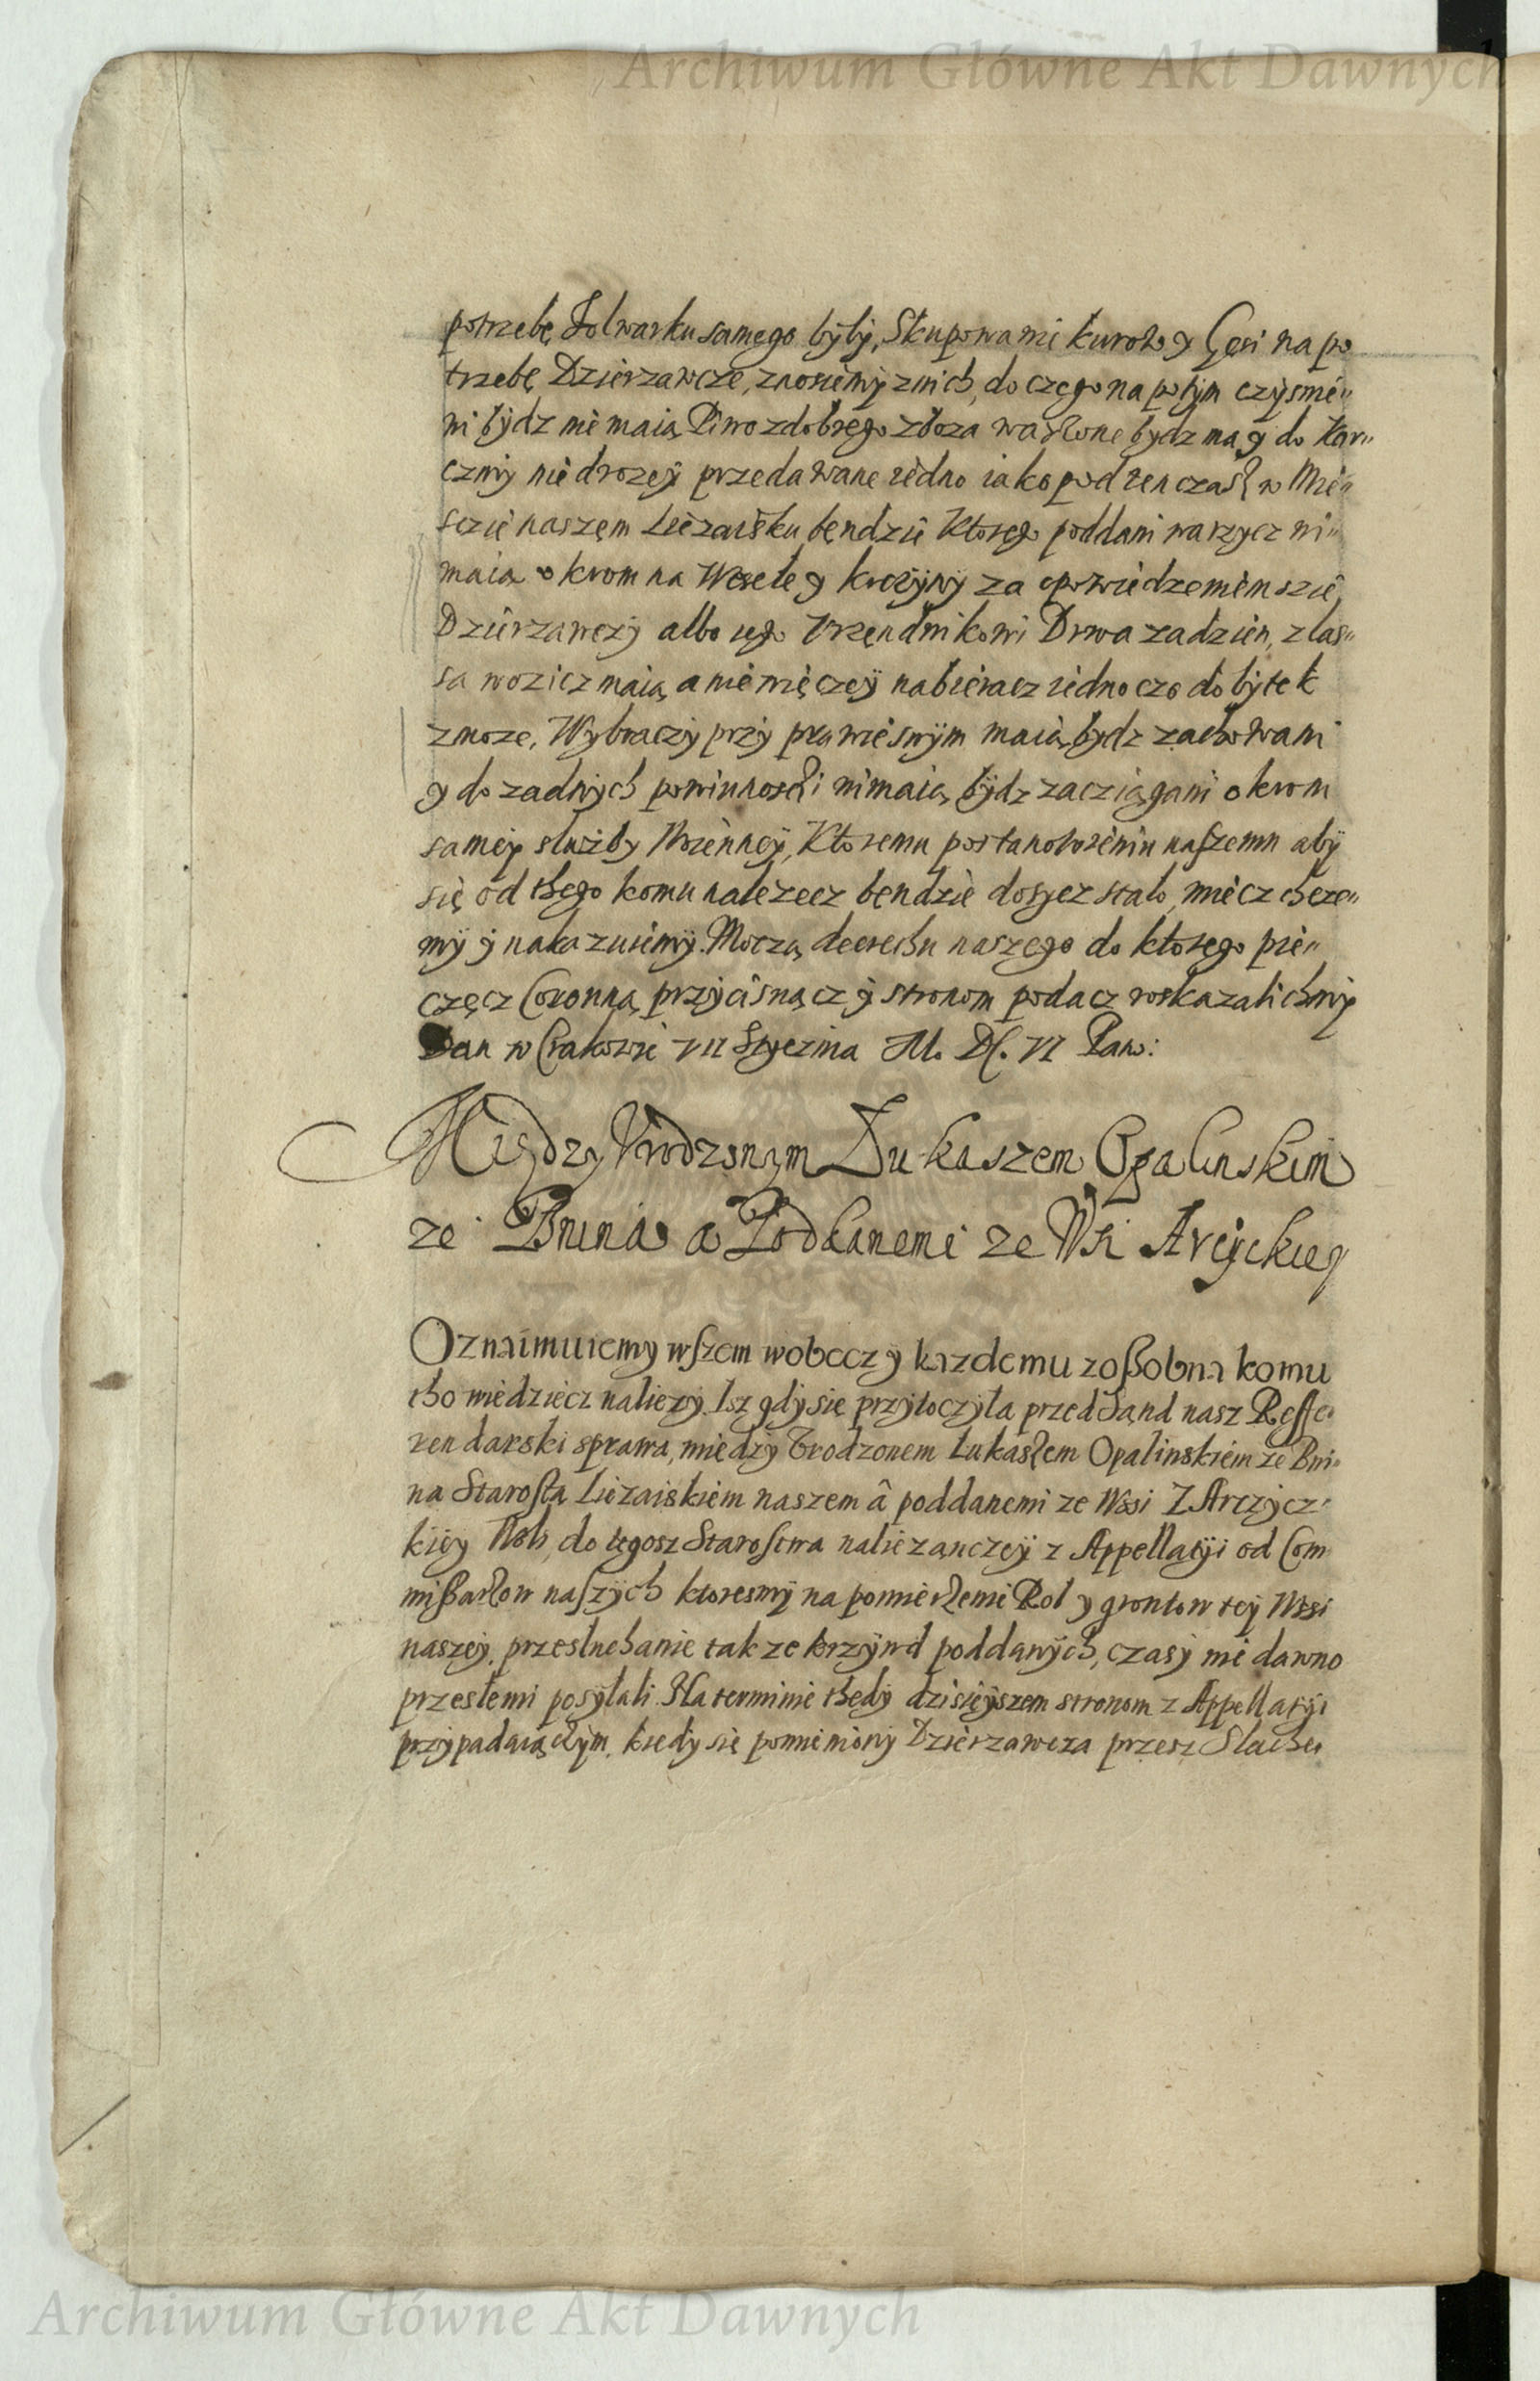 Archiwum Główne Akt Dawnych
potrzebę folwarku samego byly, Skupowanie kurow y Gęsi na po
trzebę Dzierzawcze, znosiemy znich, do czego na potym czysnie„
ni bydz nie maią Piwo zdobrego zboza warzone bydz ma y do kar„
czmy nie drozey przedawane iedno iako pod ten czas w Mie„
sczie naszem Liezaisku bendzie ktorego poddani warzycz ni„
maią okrom na Wesele y krcziny za opowiedzeniem szie
Dzierzawczy albo iego Vrzendnikowi Drwa zadzien, z las„
sa wozicz maią a niewięczey nabieracz iedno czo dobytek
zmoze, Wybraczy przy prawie swym maią bydz zachowani
y do zadnych powinnosci nimaią bydz zacziągani okrom
samey sluzby Woienney, Ktoremu postanowieniu naszemu aby
się od thego komu nalezecz bendzie dosycz stalo, miecz chcze„
my y nakazuiemy. Moczą decrethu naszego do ktorego pie„
częcz Coronną przycisnącz y stronom podacz roskazalichmy
Dan w Crakowie VII Stycznia M. DC. VI Pan:
Między Vrodzonym Łukaszem Opalinskim
ze Bnina a Poddanemi ze Wsi Arcyckiey
Oznaimuiemy wszem wobecz y kazdemu zossobna komu
tho wiedziecz naliezy. Isz gdy się przytoczyla przed Sand nasz Reffe„
rendarski sprawa, miedzy Vrodzonem Lukaszem Opalinskiem ze Bni„
na Starostą Liezaiskiem naszem a poddanemi ze Wssi Z Arczycz„
kiey Woli, do tegosz Starostwa naliezanczey z Appellatyi od Com
missarzow naszych ktoresmy na pomierzenie Rol y grontow tey Wssi
naszey, przesluchanie takze krzywd poddanych, czasy nie dawno
przeslemi posylali. Na terminie thedy dzisieyszem stronom z Appellatyi
przypadaiączym, kiedy się pomieniony Dzierzawcza przesz Slache
Archiwum Główne Akt Dawnych